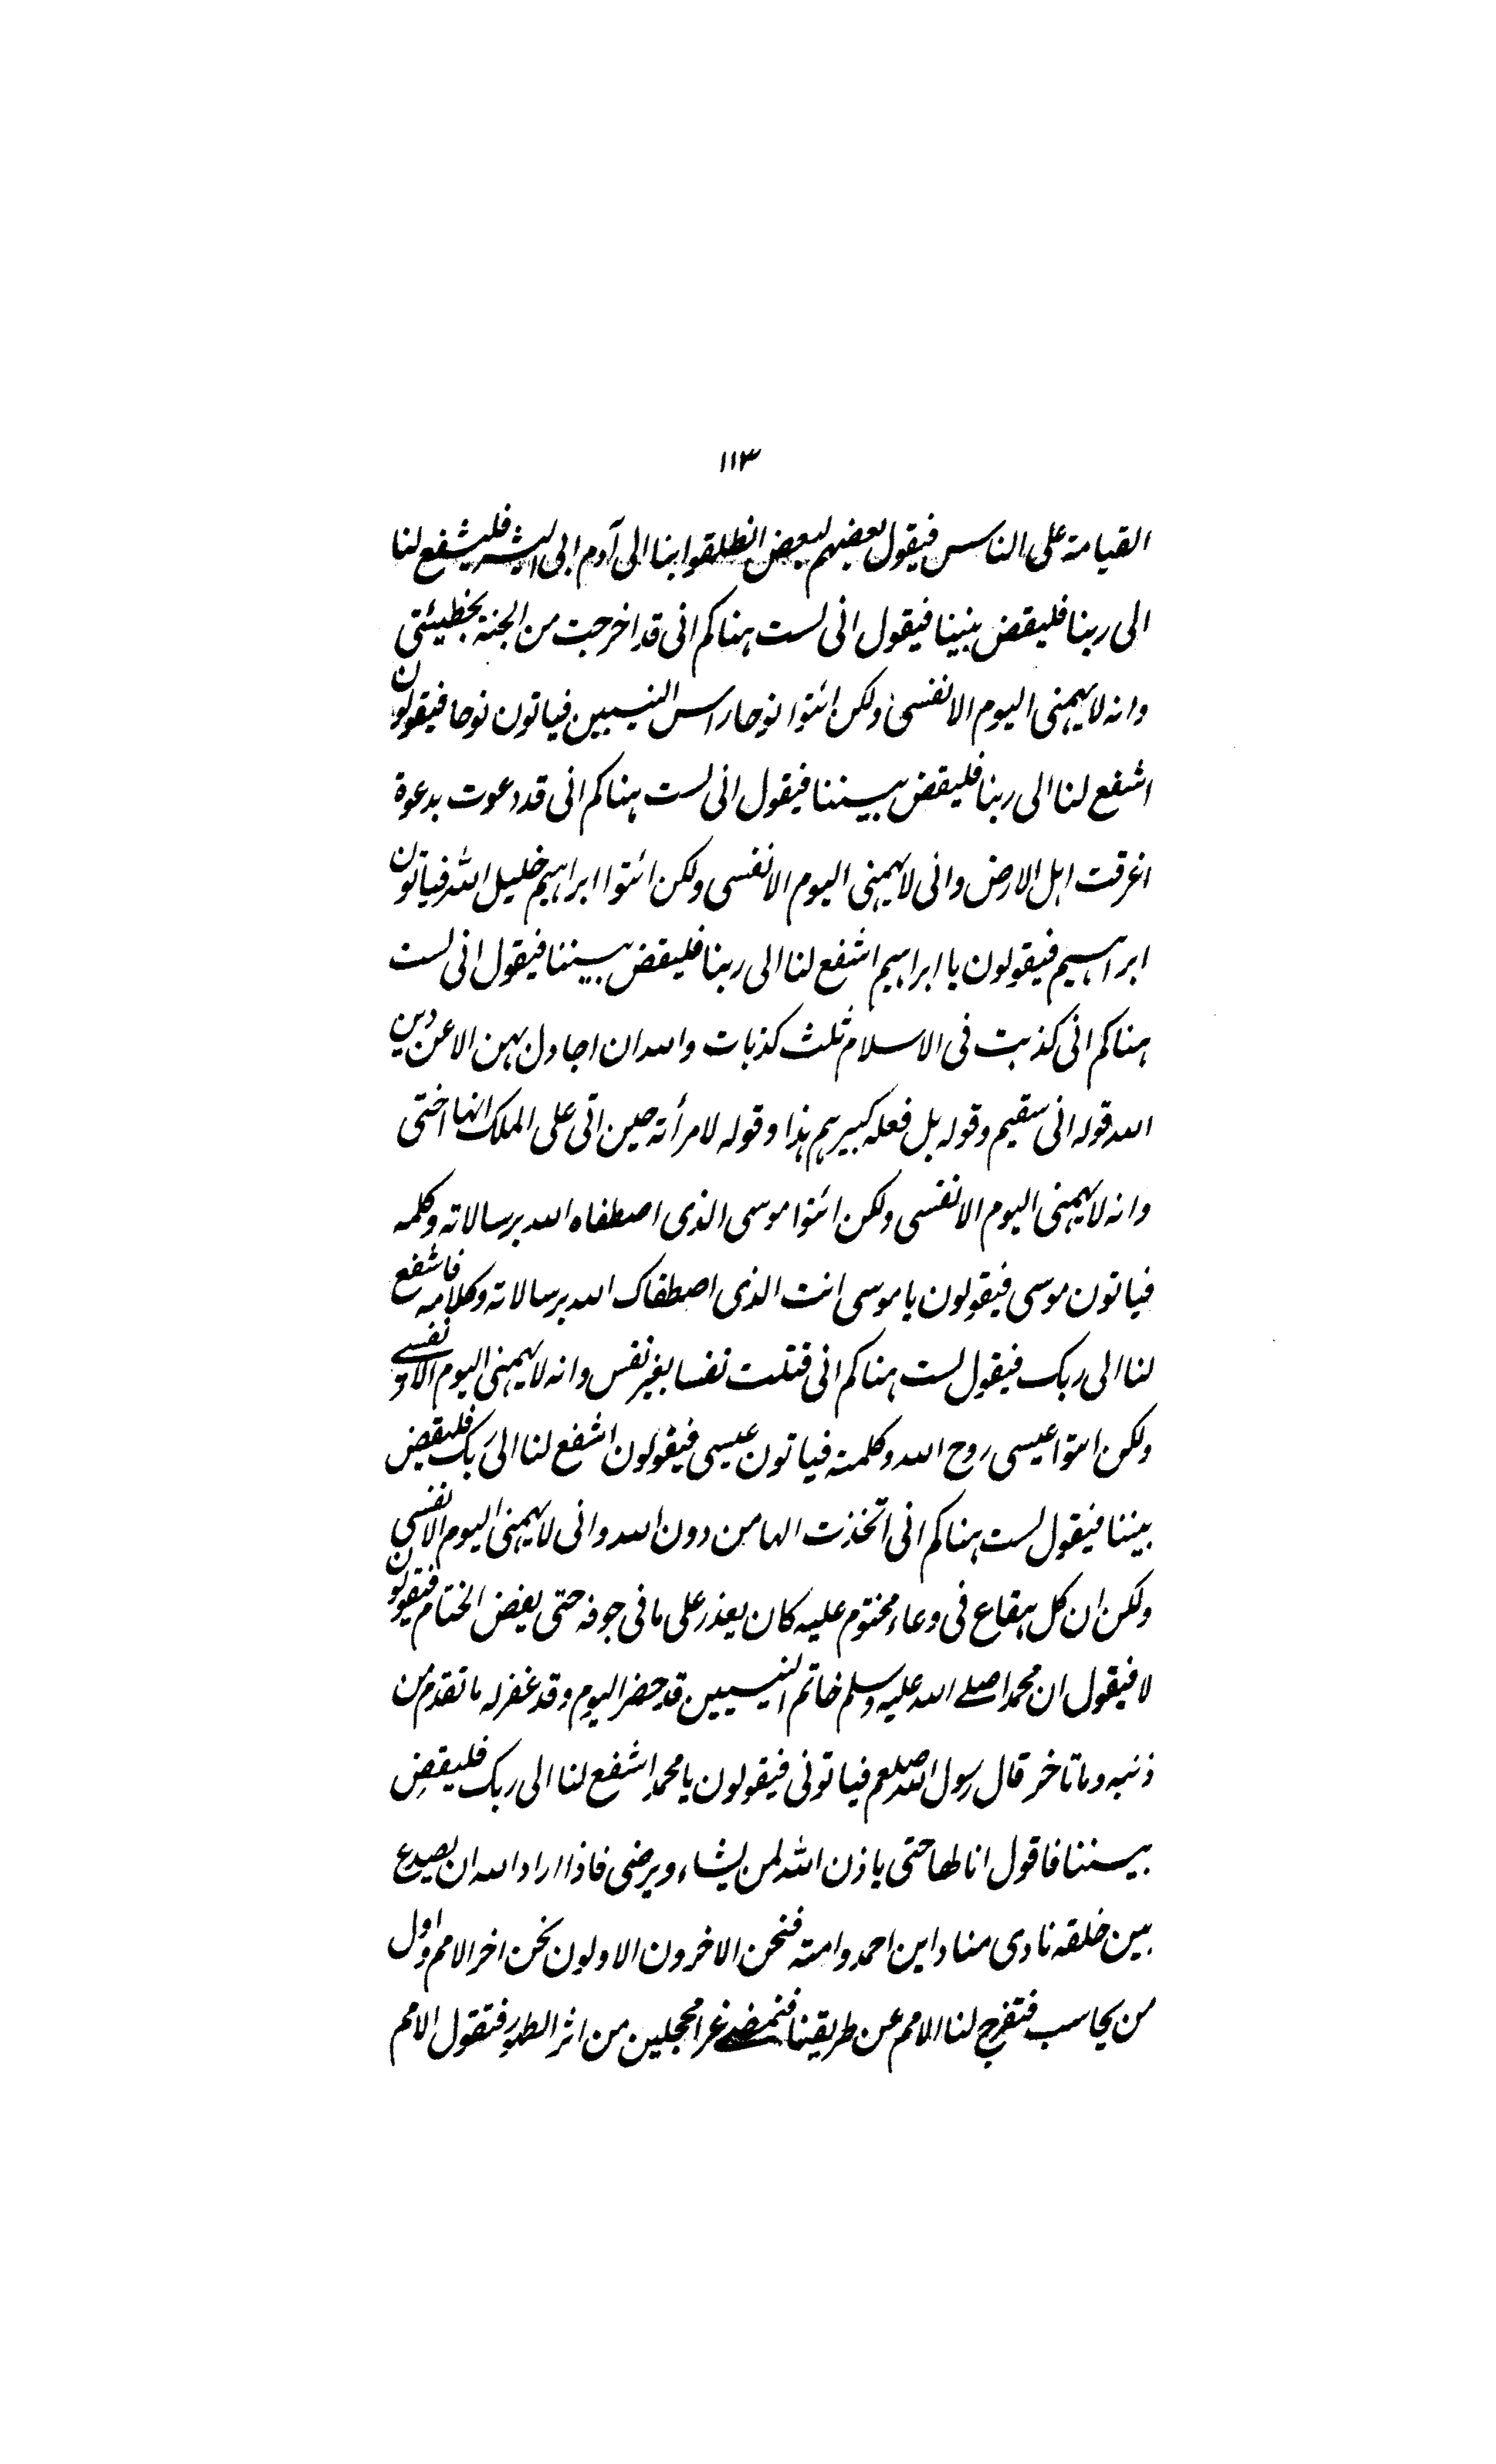 ۱۱۳
القيامة على الناس فيقول بعضهم لبعض انطلقوا بنا الى آدم ابى البشر فليشفع لنا
الى ربنا فليقض بيننا فيقول انى لست هناكم انى قد اخرجت من الجنة بخطيئتى
وانه لا يهمنى اليوم الا نفسى ولكن ائتوا نوحا راس النبيين فياتون نوحا فيقولون
اشفع لنا الى ربنا فليقض بيننا فيقول انى لست هناكم انى قد دعوت بدعوة
اغرقت اهل الارض وانى لا يهمنى اليوم الا نفسى ولكن ائتوا ابراهيم خليل الله فياتون
ابراهيم فيقولون يا ابراهيم اشفع لنا الى ربنا فليقض بيننا فيقول انى لست
هناكم انى كذبت فى الاسلام ثلث كذبات والله ان اجادل بهن الا عن دين
الله قوله انى سقيم وقوله بل فعله كبيرهم هذا وقوله لامرأته حين اتى على الملك انها اختى
وانه لا يهمنى اليوم الا نفسى ولكن ائتوا موسى الذى اصطفاه الله برسالاته وكلمه
فياتون موسى فيقولون يا موسى انت الذى اصطفاك الله برسالاته وكلامه فاشفع
لنا الى ربك فيقول لست هناكم انى قتلت نفسا بغير نفس وانه لا يهمنى اليوم الا نفسى
ولكن ائتوا عيسى روح الله وكلمته فياتون عيسى فيقولون اشفع لنا الى ربك فليقض
بيننا فيقول لست هناكم انى اتخذت الها من دون الله وانى لا يهمنى اليوم الا نفسى
ولكن ان كل بقاع فى وعاء مختوم عليه كان يعذر على ما فى جوفه حتى يفض الختام فيقولون
لا فيقول ان محمدا صلى الله عليه وسلم خاتم النبيين قد حضر اليوم وقد غفر له ما تقدم من
ذنبه وما تاخر قال رسول الله صلعم فياتونى فيقولون يا محمد اشفع لنا الى ربك فليقض
بيننا فاقول انا لها حتى ياذن الله لمن يشاء ويرضى فاذا اراد الله ان يصدع
بين خلقه نادى مناد اين احمد وامته فنحن الاخرون الاولون نحن اخر الامم واول
من يحاسب فتفرج لنا الامم عن طريقنا فنمضى غرا محجلين من اثر الطهور فتقول الامم